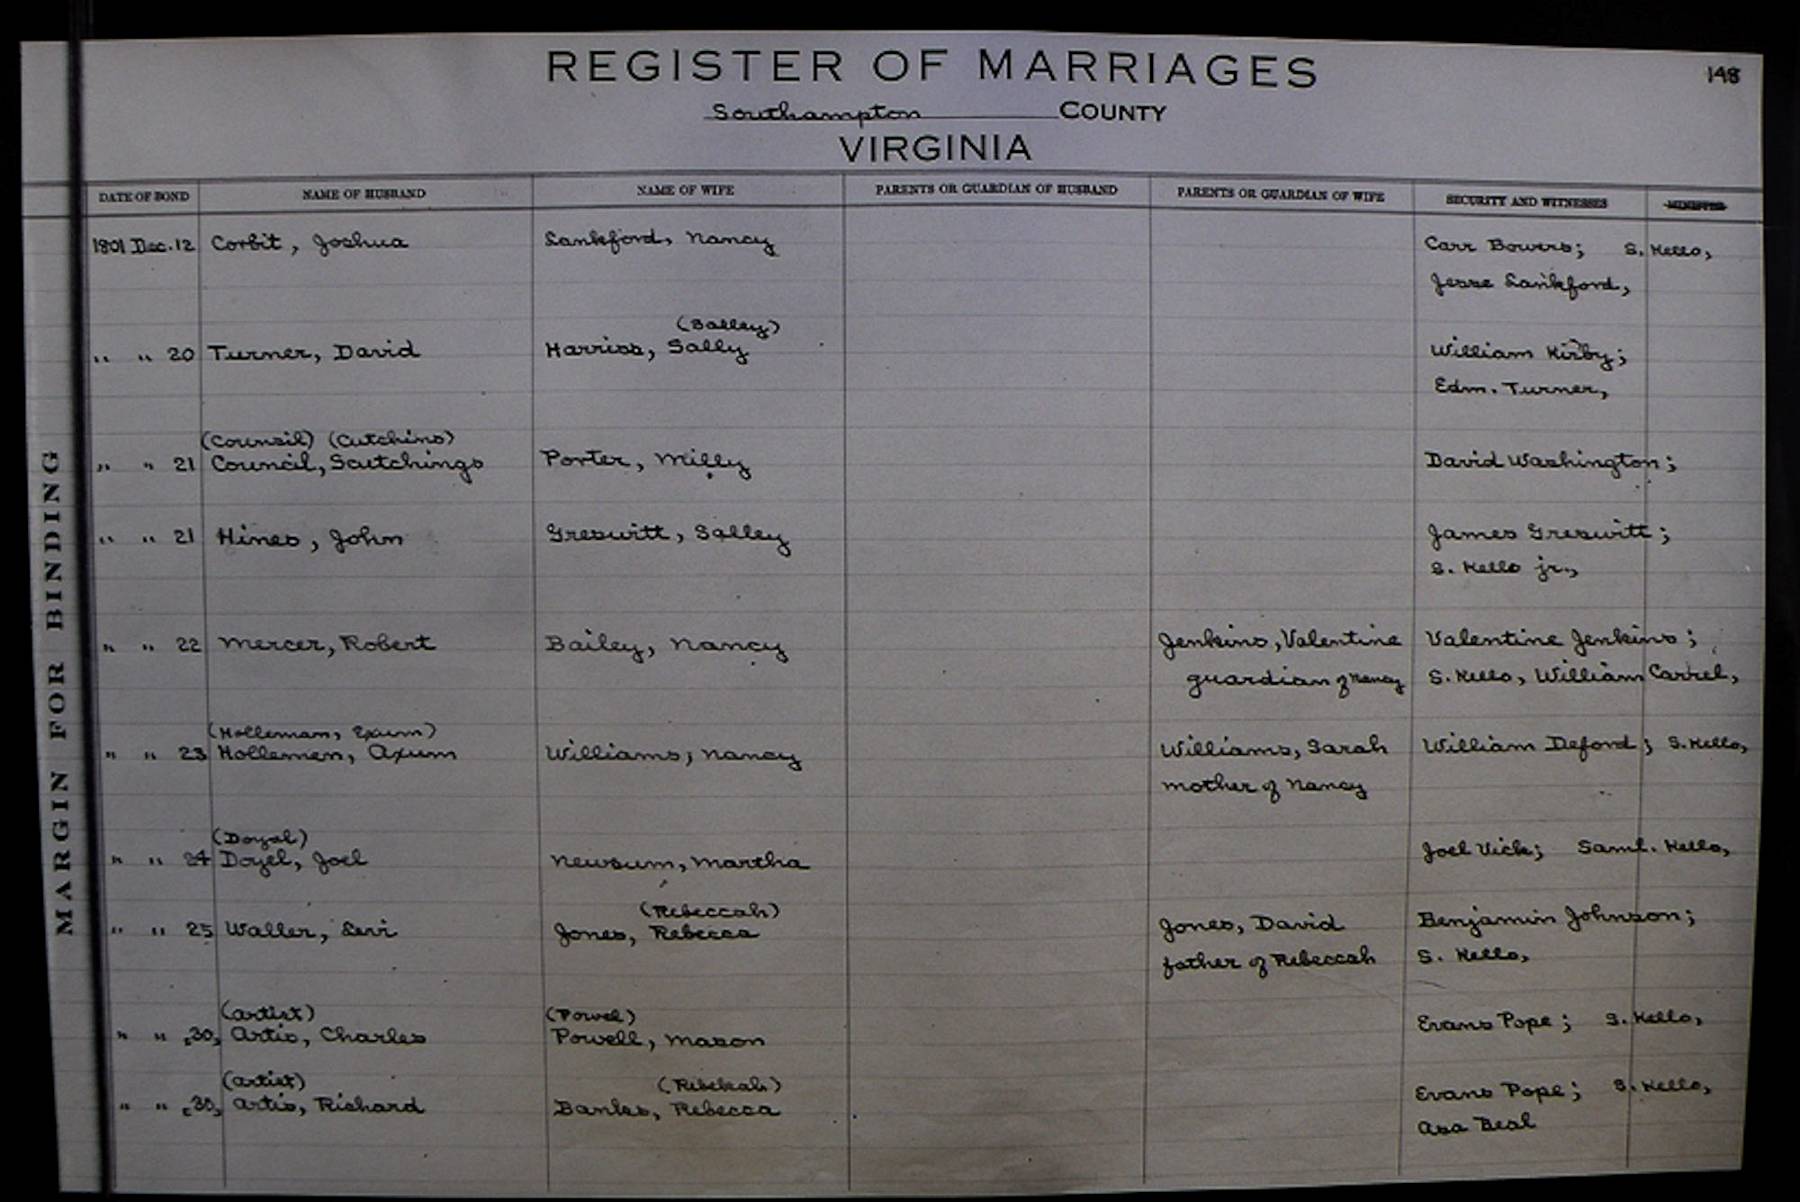 REGISTER OF MARRIAGES
148
Southampton COUNTY
VIRGINIA
DATE OF BOND NAME OF HUSBAND NAME OF WIFE PARENTS OR GUARDIAN OF HUSBAND PARENTS OR GUARDIAN OF WIFE SECURITY AND WITNESSES MINISTER
1801 Dec. 12 Corbit, Joshua Lankford, Nancy Carr Bowers; S. Kello,
Jesse Lankford,
(Salley)
" " 20 Turner, David Harriss, Sally William Kirby;
Edm. Turner,
(Counsil) (Cutchins)
" " 21 Council, Scutchings Porter, Milly David Washington;
" " 21 Hines, John Greswitt, Salley James Greswitt;
S. Kello jr.,
" " 22 Mercer, Robert Bailey, Nancy Jenkins, Valentine Valentine Jenkins;
guardian of Nancy S. Kello, William Carrel,
(Holleman, Exum)
" " 23 Hollemen, Axum Williams, Nancy Williams, Sarah William Deford; S. Kello,
mother of Nancy
(Doyal)
" " 24 Doyel, Joel Newsum, Martha Joel Vick; Saml. Kello,
(Rebeccah)
" " 25 Waller, Levi Jones, Rebecca Jones, David Benjamin Johnson;
father of Rebeccah S. Kello,
(Artist) (Powel)
" " [30] Artis, Charles Powell, Mason Evans Pope; S. Kello,
(Artist) (Rebekah)
" " [30] Artis, Richard Banks, Rebecca Evans Pope; S. Kello,
Asa Beal
MARGIN FOR BINDING